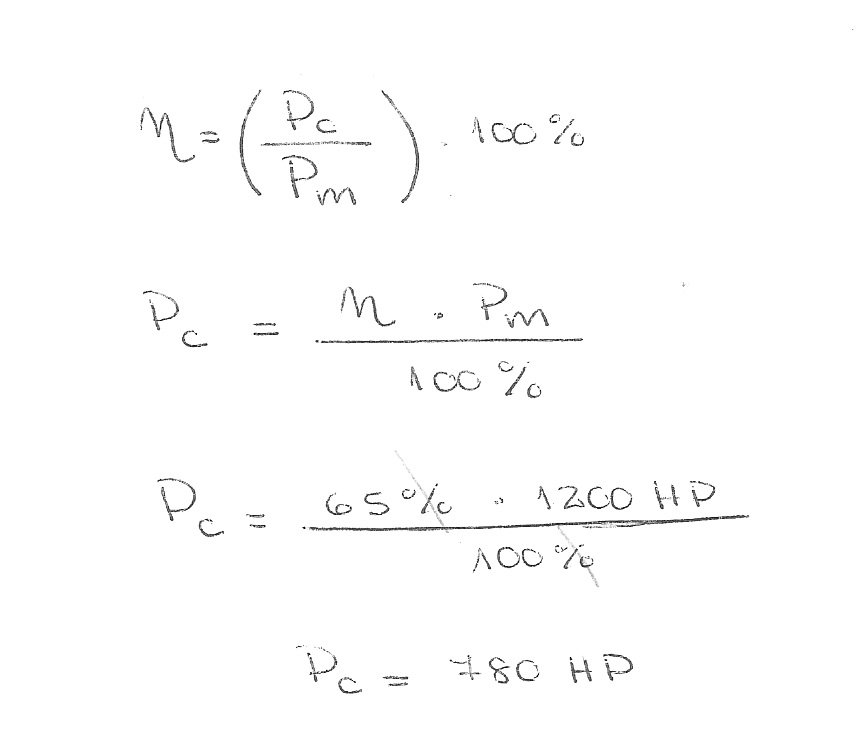 η = (Pc / Pm) · 100 %
Pc = η · Pm / 100 %
Pc = 65 % · 1200 HP / 100 %
Pc = 780 HP